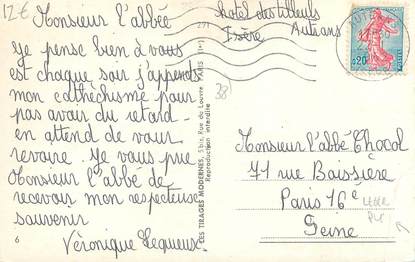 12€
Monsieur l'abbé
je pense bien à vous
est chaque soir j'apprends
mon cathéchisme pour
pas avoir du retard -
en attend de vour
revoire. Je vous prie
Monsieur l'abbé de
recevois mon respecteuse
souvenir
Véronique Lequeux.
6
hôtel des tilleuls
Autrans
Isère
38
LES TIRAGES MODERNES, 5 bis, Rue du Louvre PARIS (1er)
Reproduction interdite
0,20
Monsieur l'abbé Chocol
71 rue Boissière
Paris 16e
Seine